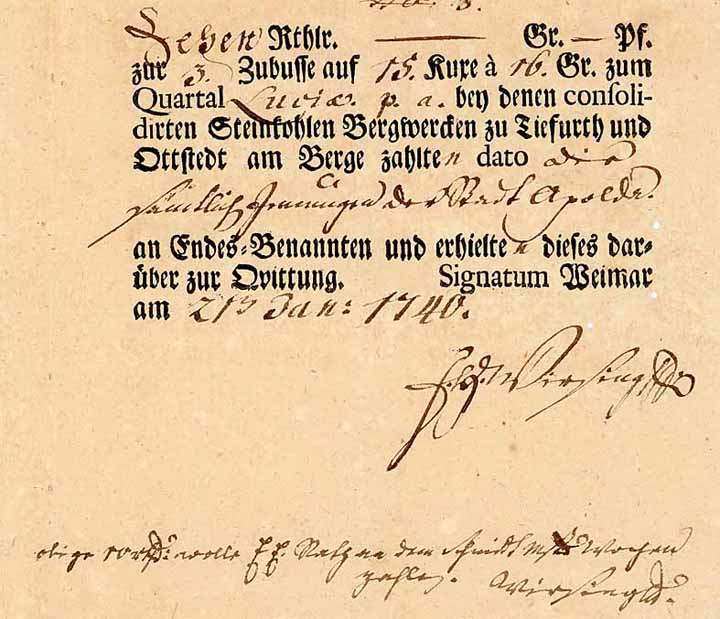 No. 3.
Zehen Rthlr. — Gr. — Pf.
zur 3. Zubusse auf 15. Kuxe à 16. Gr. zum
Quartal Luciæ. p. a. bey denen consoli-
dirten Steinkohlen Bergwercken zu Tiefurth und
Ottstedt am Berge zahlten dato die
sämtlich Innungen der Stadt Apolda.
an Endes-Benannten und erhielten dieses dar-
über zur Qvittung. Signatum Weimar
am 21 Jan: 1740.
Wirsing
obige wolle E. E. Rath an dem Wochen
zahlen. Wirsing